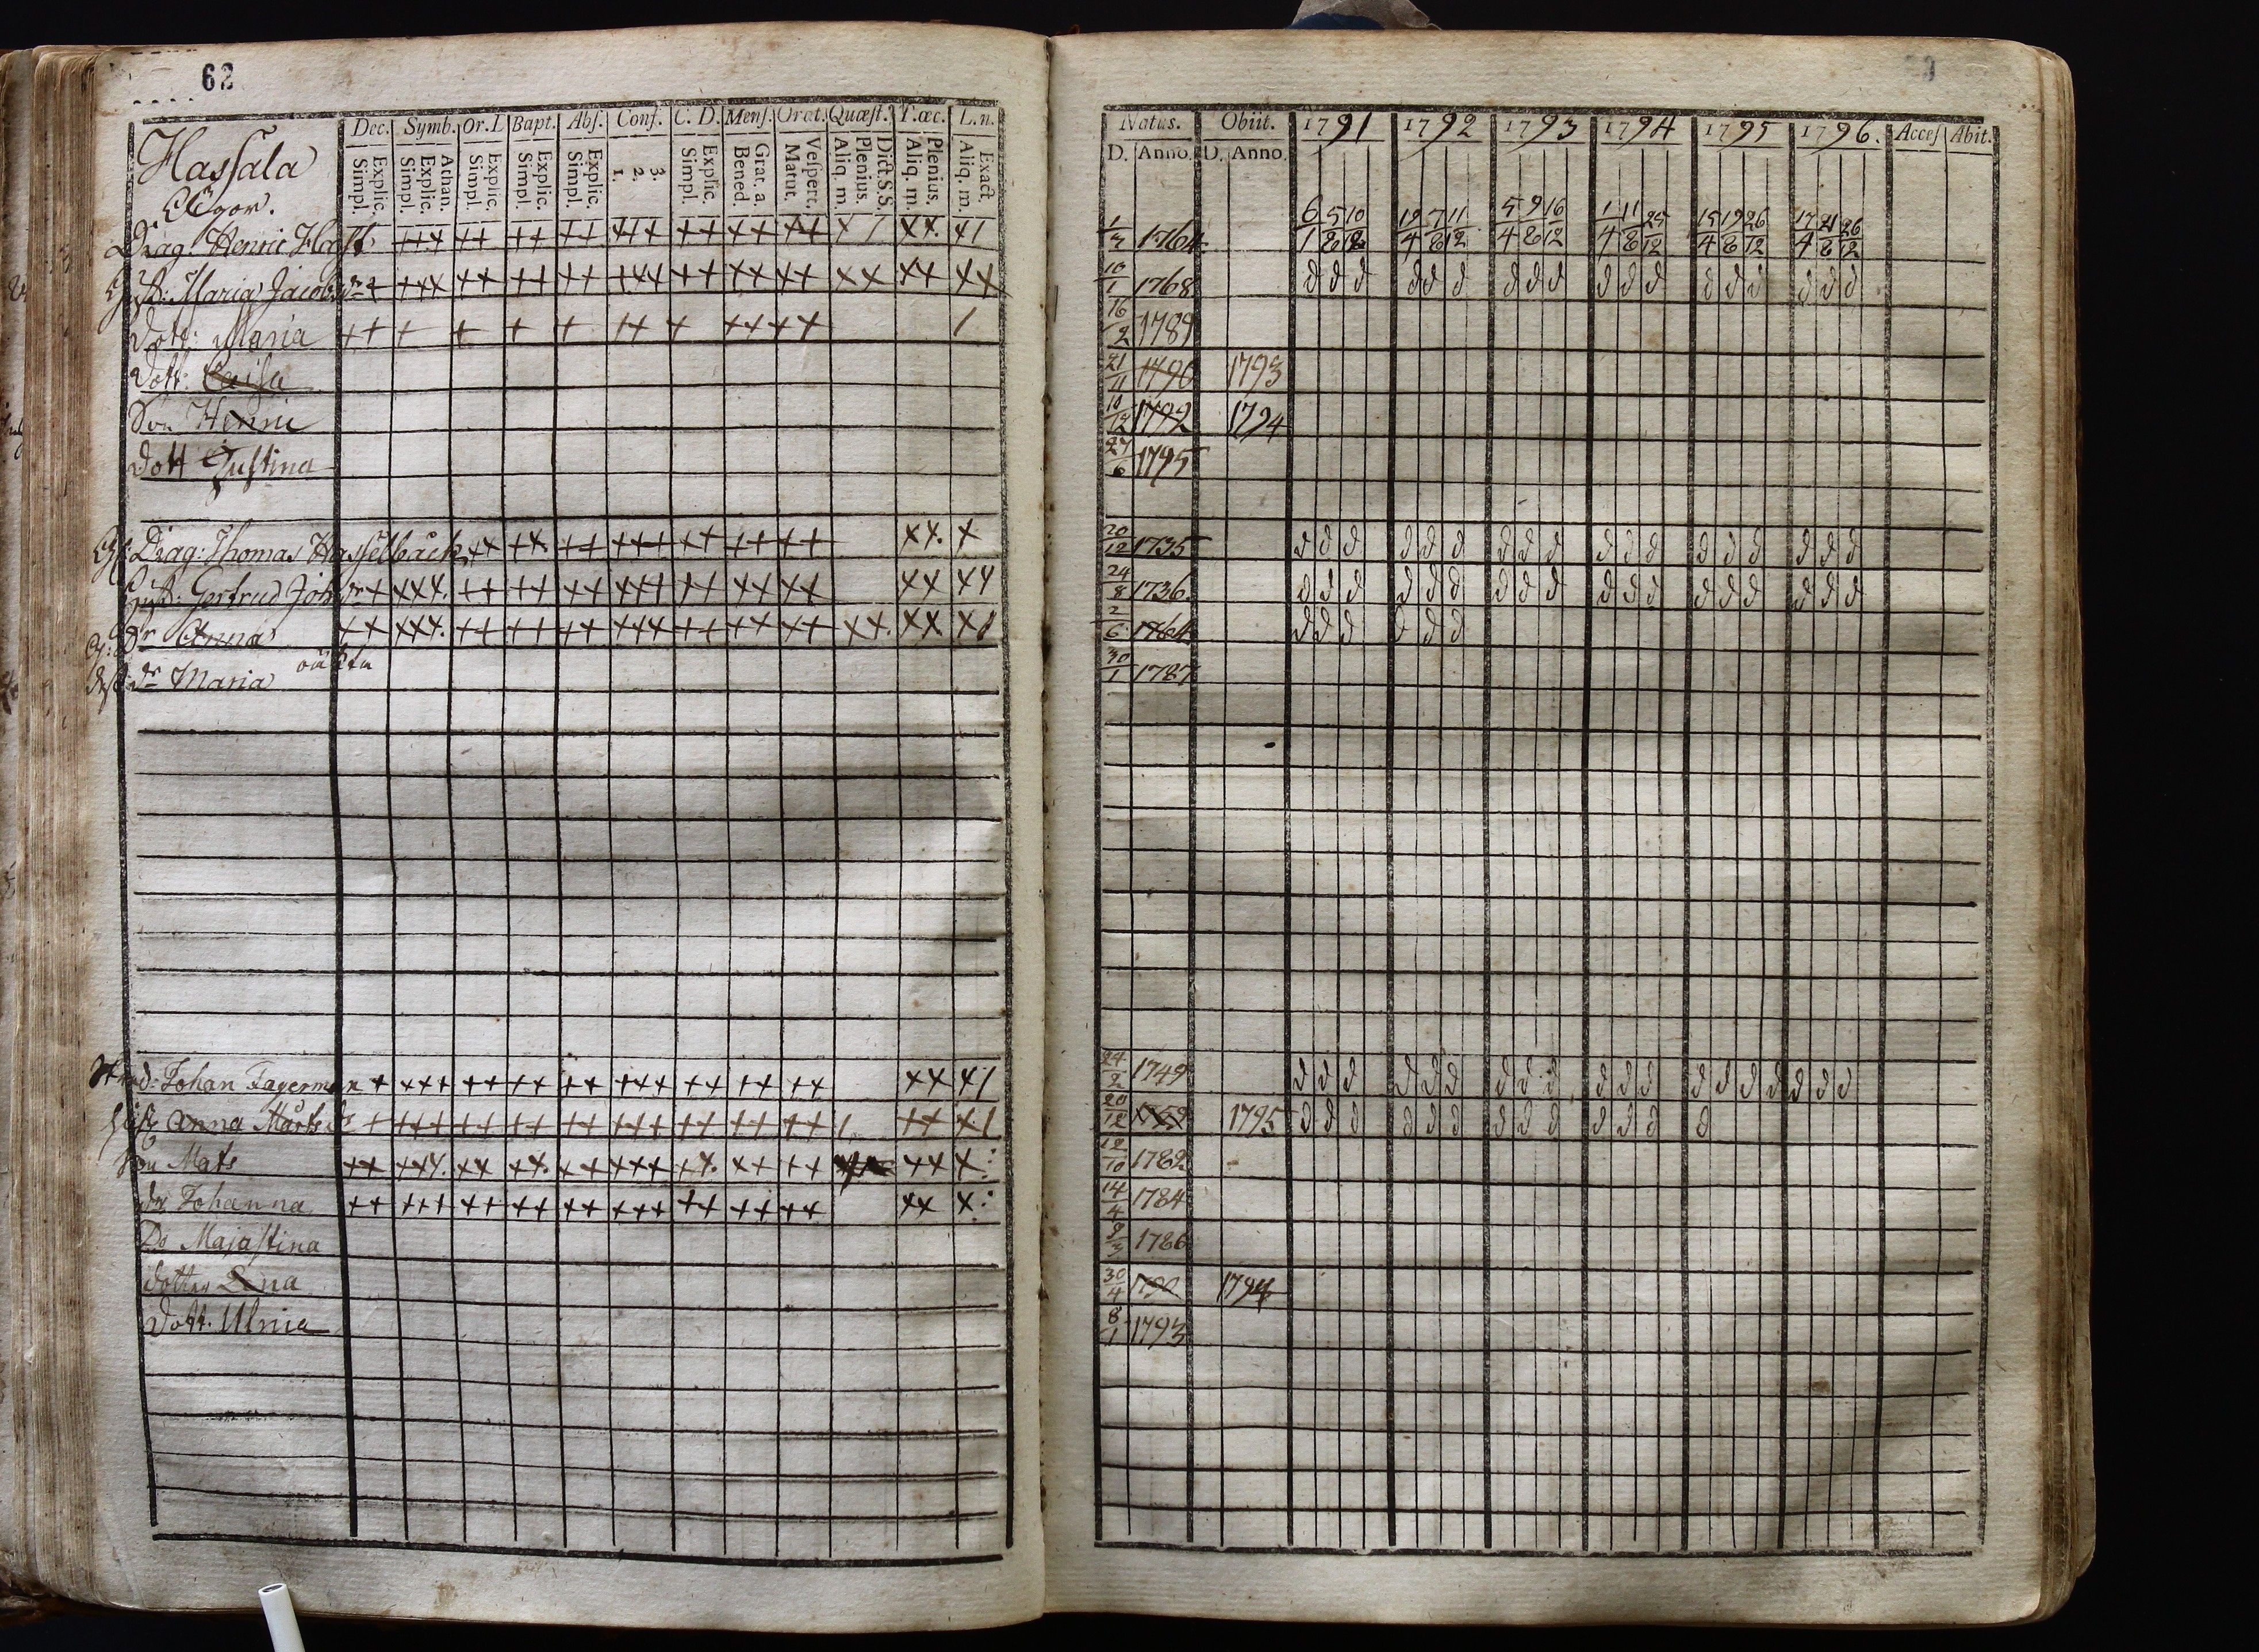 62
Dec. Symb. Or. D Bapt. Abſ. Conf. C. D. Menſ. Orat. Quæſt. T.æc. L.n.
Explic. Simpl. Athan. Explic. Simpl. Explic. Simpl. Explic. Simpl. Explic. Simpl. 3. 2. 1. Explic. Simpl. Grat. a. Bened. Veſpert. Matut. Dict. S.S. Plenius. Aliq. m. Plenius. Aliq. m. Exact. Aliq. m.
Haſsala
Ägor.
Drag. Henric Haſt. +++ ++ ++ ++ +++ ++ ++ ++ x / xx. x/
Hust: Maria Jacobsdr + +++ ++ ++ ++ +++ ++ ++ ++ xx ++ xx
dott: Maria ++ + + + + ++ + ++ ++ /
dott: Caiſa
Son Henric
dott Juſtina
Drag: Thomas Haſselbäck ++ ++ ++ +++ ++ ++ ++ xx. x
Hust: Gertrud Joh dr + xxx. ++ ++ ++ +++ ++ ++ ++ xx xx
dr Anna ++ xxx. ++ ++ ++ +++ ++ ++ ++ xx. xx. x/
oäkta
dr Maria
Johan Fagerman + +++ ++ ++ ++ +++ ++ ++ ++ xx x/
Hust Anna Mårtsdr + +++ ++ ++ ++ +++ ++ ++ ++ / ++ x/
Son Mats ++ +++. ++ ++. ++ +++ ++. ++ ++ xx x:
dr Johanna ++ +++ ++ ++ ++ +++ ++ ++ ++ xx x:
Do Majaſtina
dotter Lena
Dott. Ulrica
Natus. Obiit. 1791 1792 1793 1794 1795 1796. Acceſ Abit.
D. Anno. D. Anno.
1/3 1764 6/1 5/8 10/12 19/4 7/8 11/12 5/4 9/8 16/12 1/4 11/8 25/12 15/4 19/8 26/12 17/4 21/8 26/12
10/1 1768 d d d d d d d d d d d d d d d d d d
16/2 1789
21/11 1790 1793
10/12 1792 1794
27/6 1795
20/12 1735 d d d d d d d d d d d d d d d d d d
24/8 1736 d d d d d d d d d d d d d d d d d d
2/6 1764 d d d d d d
30/1 1787
24/2 1749 d d d d d d d d d d d d d d d d d d d
20/12 1795 d d d d d d d d d d d d d
12/10 1782
14/4 1784
9/3 1786
30/4 1790 1794
8/1 1793